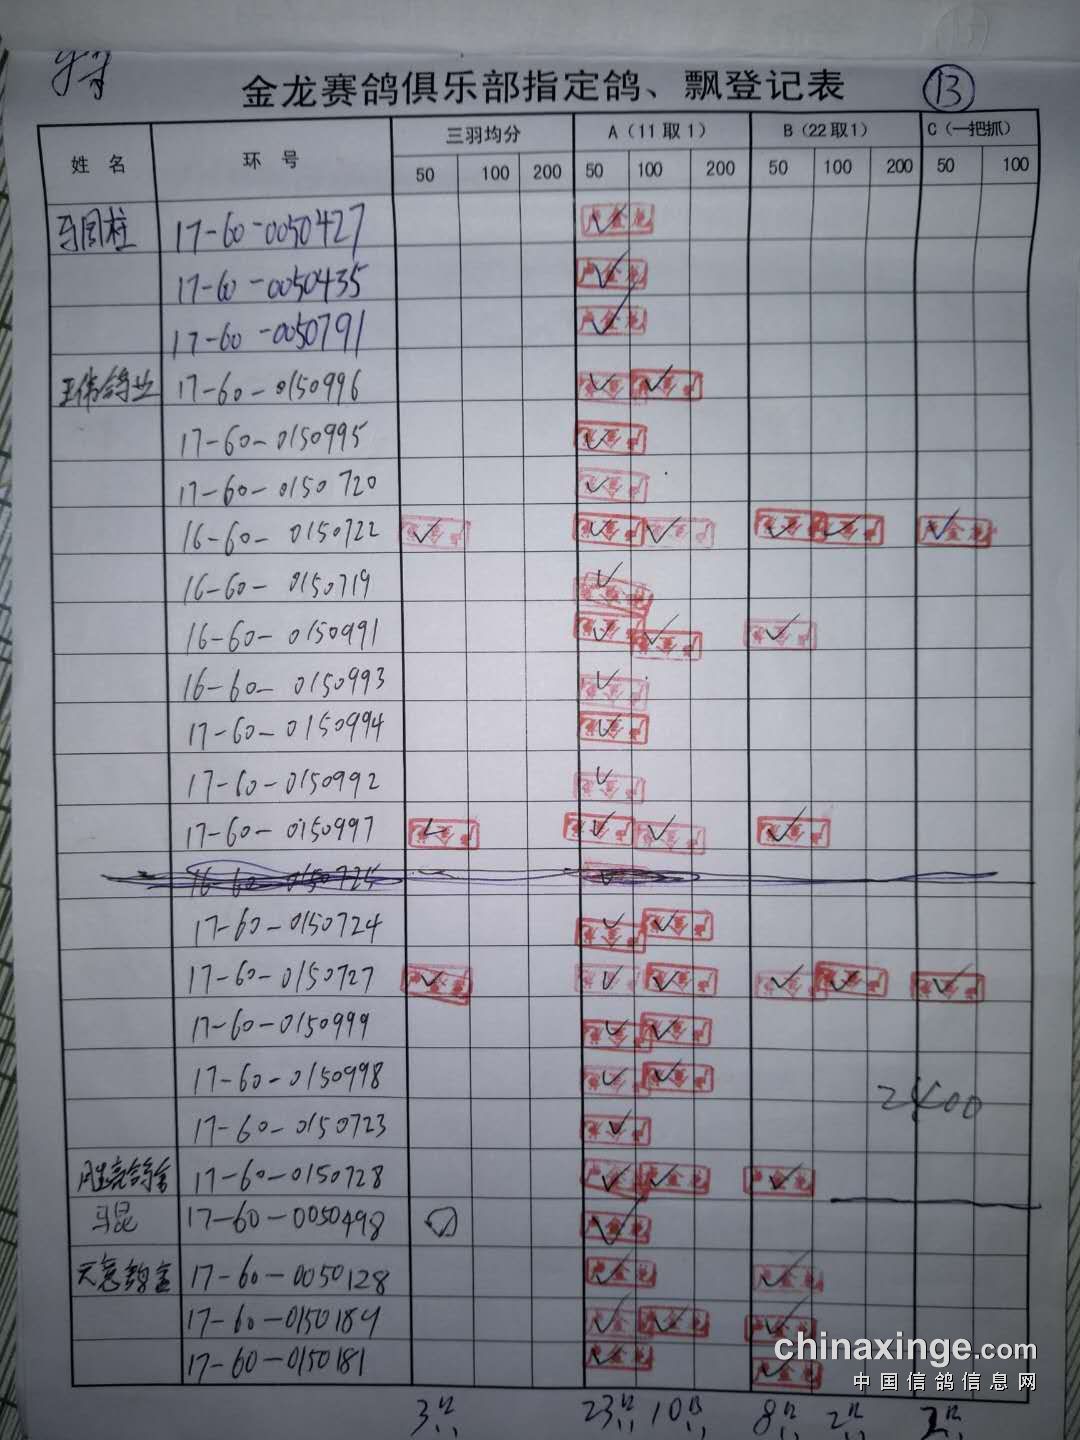 特
金龙赛鸽俱乐部指定鸽、飘登记表 13
姓名 环号 三羽均分 A(11取1) B(22取1) C(一把抓)
50 100 200 50 100 200 50 100 200 50 100
马国柱 17-60-0050427 ✓
17-60-0050435 ✓
17-60-0050791 ✓
王伟鸽业 17-60-0150996 ✓ ✓
17-60-0150995 ✓
17-60-0150720 ✓
16-60-0150722 ✓ ✓ ✓ ✓ ✓ ✓
16-60-0150719 ✓
16-60-0150991 ✓ ✓ ✓
16-60-0150993 ✓
17-60-0150994 ✓
17-60-0150992 ✓
17-60-0150997 ✓ ✓ ✓ ✓
16-60-0150725 ✓
17-60-0150724 ✓ ✓
17-60-0150727 ✓ ✓ ✓ ✓ ✓ ✓
17-60-0150999 ✓ ✓
17-60-0150998 ✓ ✓
2400
17-60-0150723 ✓
鸽舍 17-60-0150728 ✓ ✓ ✓
马昆 17-60-0050498 ✓
天意 17-60-0050128 ✓ ✓
17-60-0150184 ✓ ✓ ✓
17-60-0150181 ✓ ✓
3只 23只 10只 8只 2只 2只
chinaxinge.com
中国信鸽信息网